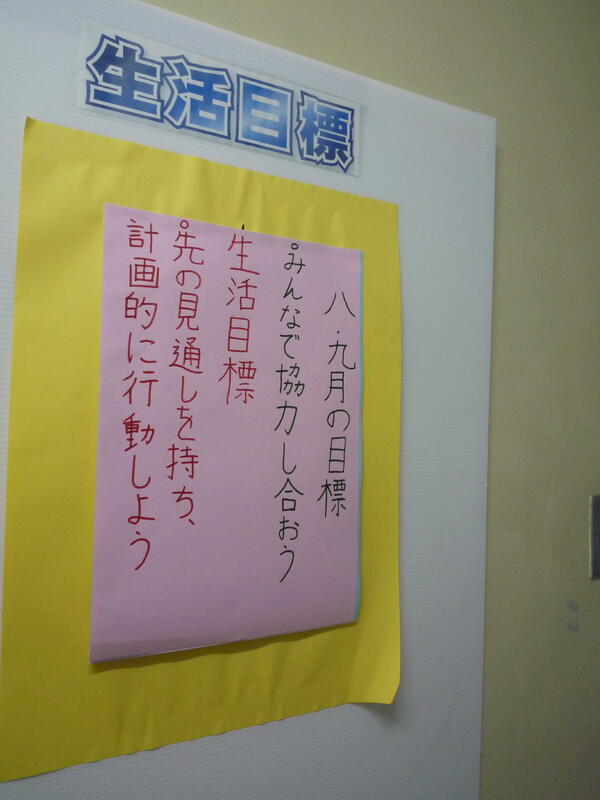 生活目標
八・九月の目標
。みんなで協力し合おう
生活目標
。先の見通しを持ち、
計画的に行動しよう